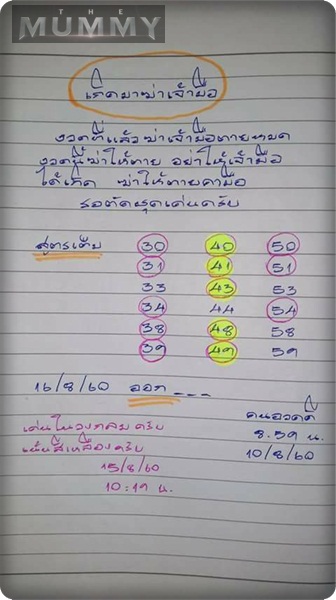 THE
MUMMY
เกิดมาฆ่าเจ้ามือ
งวดที่แล้วฆ่าเจ้ามือตายหมด
งวดนี้ฆ่าให้ตาย อย่าให้เจ้ามือ
ได้เกิด ฆ่าให้ตายคามือ
รอตัดชุดเด่นครับ
สูตรเต็ม 30 40 50
31 41 51
33 43 53
34 44 54
38 48 58
39 49 59
16/8/60 ออก ---
คนอวดดี
8.59 น.
10/8/60
เด่นในวงกลมครับ
เน้นสีเหลืองครับ
15/8/60
10:19 น.